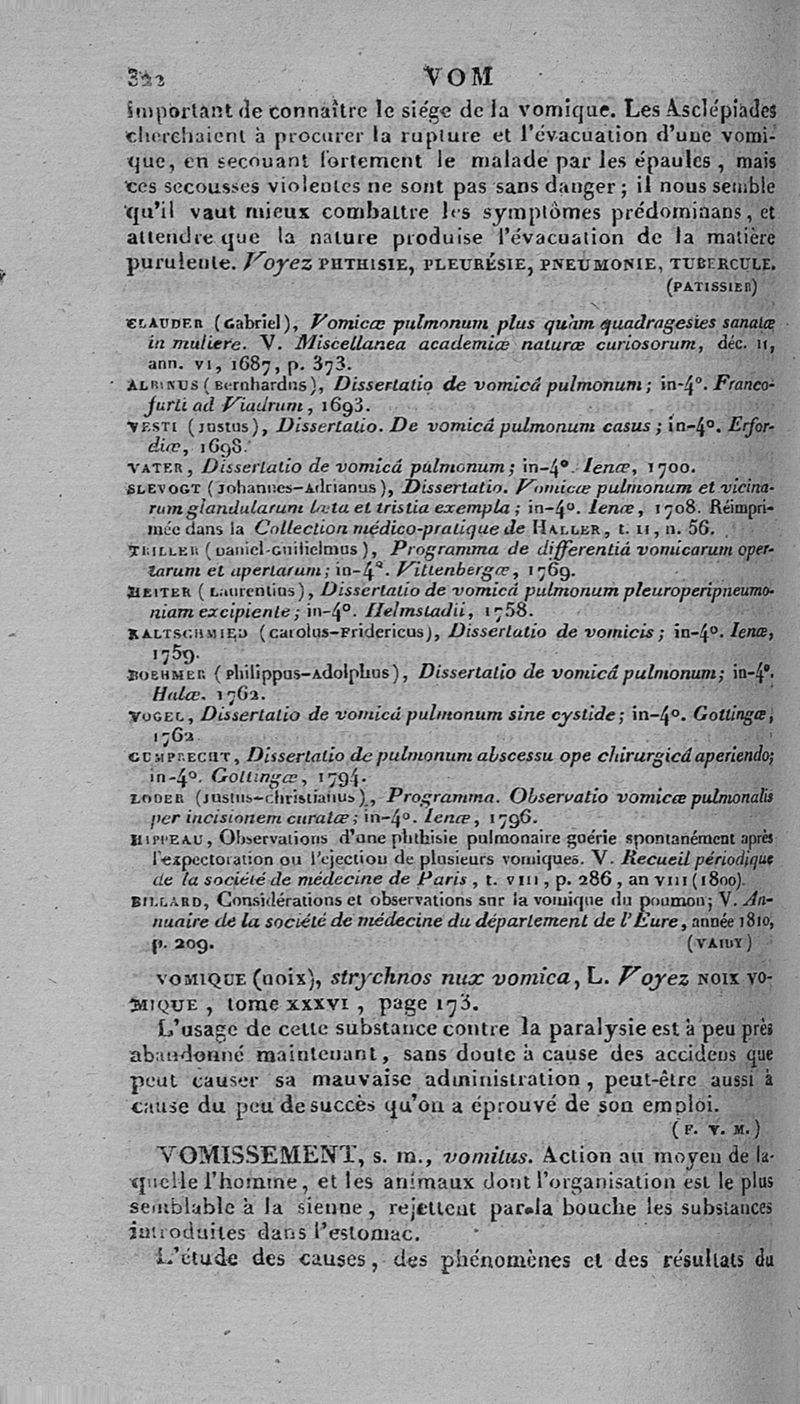 322 VOM
important de connaître le siége de la vomique. Les Asclépiades
cherchaient à procurer la rupture et l'évacuation d'une vomi-
que, en secouant fortement le malade par les épaules, mais
ces secousses violentes ne sont pas sans danger; il nous semble
qu'il vaut mieux combattre les symptômes prédominans, et
attendre que la nature produise l'évacuation de la matière
purulente. Voyez PHTHISIE, PLEURÉSIE, PNEUMONIE, TUBERCULE.
(PATISSIER)
CLAUDER (Gabriel), Vomicæ pulmonum plus quàm quadragesies sanatæ
in muliere. V. Miscellanea academiæ naturæ curiosorum, déc. II,
ann. VI, 1687, p. 373.
ALBINUS (Bernhardus), Dissertatio de vomicâ pulmonum; in-4°. Franco-
furti ad Viadrum, 1693.
VESTI (Justus), Dissertatio. De vomicâ pulmonum casus; in-4°. Erfor-
diæ, 1698.
VATER, Dissertatio de vomicâ pulmonum; in-4°. Ienæ, 1700.
SLEVOGT (Johannes-Adrianus), Dissertatio. Vomicæ pulmonum et vicina-
rum glandularum læta et tristia exempla; in-4°. Ienæ, 1708. Réimpri-
mée dans la Collection médico-pratique de HALLER, t. II, n. 56.
TRILLER (Daniel-Guilielmus), Programma de differentiâ vomicarum oper-
tarum et apertarum; in-4°. Vittenbergæ, 1769.
HEITER (Laurentius), Dissertatio de vomicâ pulmonum pleuroperipneumo-
niam excipiente; in-4°. Helmstadii, 1758.
KALTSCHMIED (Carolus-Fridericus), Dissertatio de vomicis; in-4°. Ienæ,
1759.
BOEHMER (Philippus-Adolphus), Dissertatio de vomicâ pulmonum; in-4°.
Halæ. 1762.
VOGEL, Dissertatio de vomicâ pulmonum sine cystide; in-4°. Gottingæ,
1762
GUMPRECHT, Dissertatio de pulmonum abscessu ope chirurgicâ aperiendo;
in-4°. Gottingæ, 1794.
LODER (Justus-Christianus), Programma. Observatio vomicæ pulmonalis
per incisionem curatæ; in-4°. Ienæ, 1796.
HIPPEAU, Observations d'une phthisie pulmonaire guérie spontanément après
l'expectoration ou l'éjection de plusieurs vomiques. V. Recueil périodique
de la société de médecine de Paris, t. VIII, p. 286, an VIII (1800).
BILLARD, Considérations et observations sur la vomique du poumon; V. An-
nuaire de la société de médecine du département de l'Eure, année 1810,
p. 209. (VAIDY)
VOMIQUE (noix), strychnos nux vomica, L. Voyez NOIX VO-
MIQUE, tome XXXVI, page 173.
L'usage de cette substance contre la paralysie est à peu près
abandonné maintenant, sans doute à cause des accidens que
peut causer sa mauvaise administration, peut-être aussi à
cause du peu de succès qu'on a éprouvé de son emploi.
(F. V. M.)
VOMISSEMENT, s. m., vomitus. Action au moyen de la-
quelle l'homme, et les animaux dont l'organisation est le plus
semblable à la sienne, rejettent par la bouche les substances
introduites dans l'estomac.
L'étude des causes, des phénomènes et des résultats du